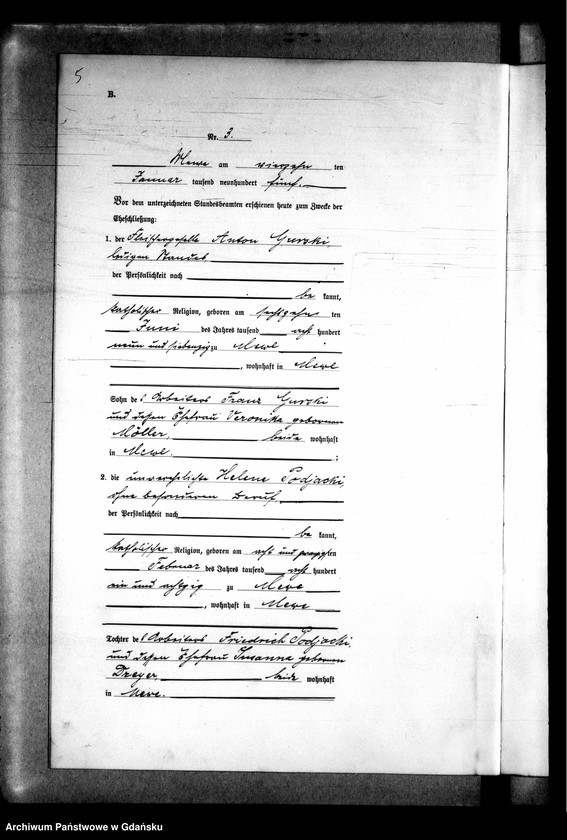 5
B.
Nr. 3.
Mewe am vierzehn ten
Januar tausend neunhundert fünf.
Vor dem unterzeichneten Standesbeamten erschienen heute zum Zwecke der
Eheschließung:
1. der Anton Gurski,
ledigen Standes
der Persönlichkeit nach
be kannt,
katholischer Religion, geboren am sechszehn ten
Juni des Jahres tausend acht hundert
neun und siebenzig zu Mewe
, wohnhaft in Mewe
Sohn des Arbeiters Franz Gurski
und dessen Ehefrau Veronika geborenen
Möller, beide wohnhaft
in Mewe. ;
2. die unverehelichte Helene Podjacki,
ohne besonderen Beruf,
der Persönlichkeit nach
be kannt,
katholischer Religion, geboren am acht und zwanzig ten
Februar des Jahres tausend acht hundert
ein und achtzig zu Mewe
, wohnhaft in Mewe
Tochter des Arbeiters Friedrich Podjacki,
und dessen Ehefrau Susanna geborenen
Dreyer, beide wohnhaft
in Mewe.
Archiwum Państwowe w Gdańsku